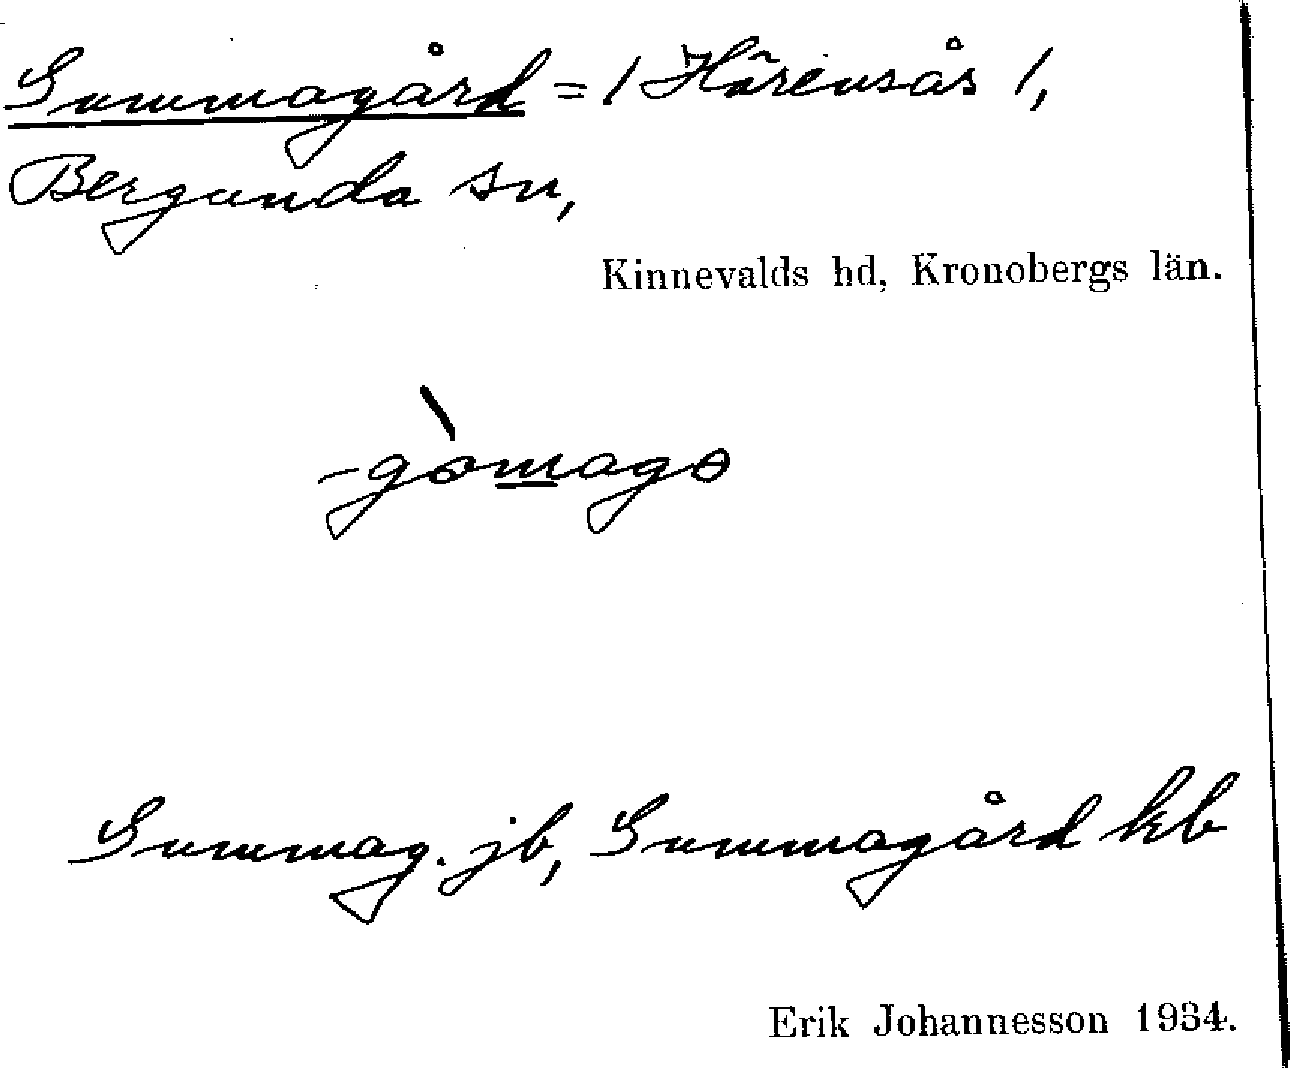 Gummagård = / Härensås /,
Bergunda sn,
Kinnevalds hd, Kronobergs län.
Gummag. jb, Gummagård kb
Erik Johannesson 1934.